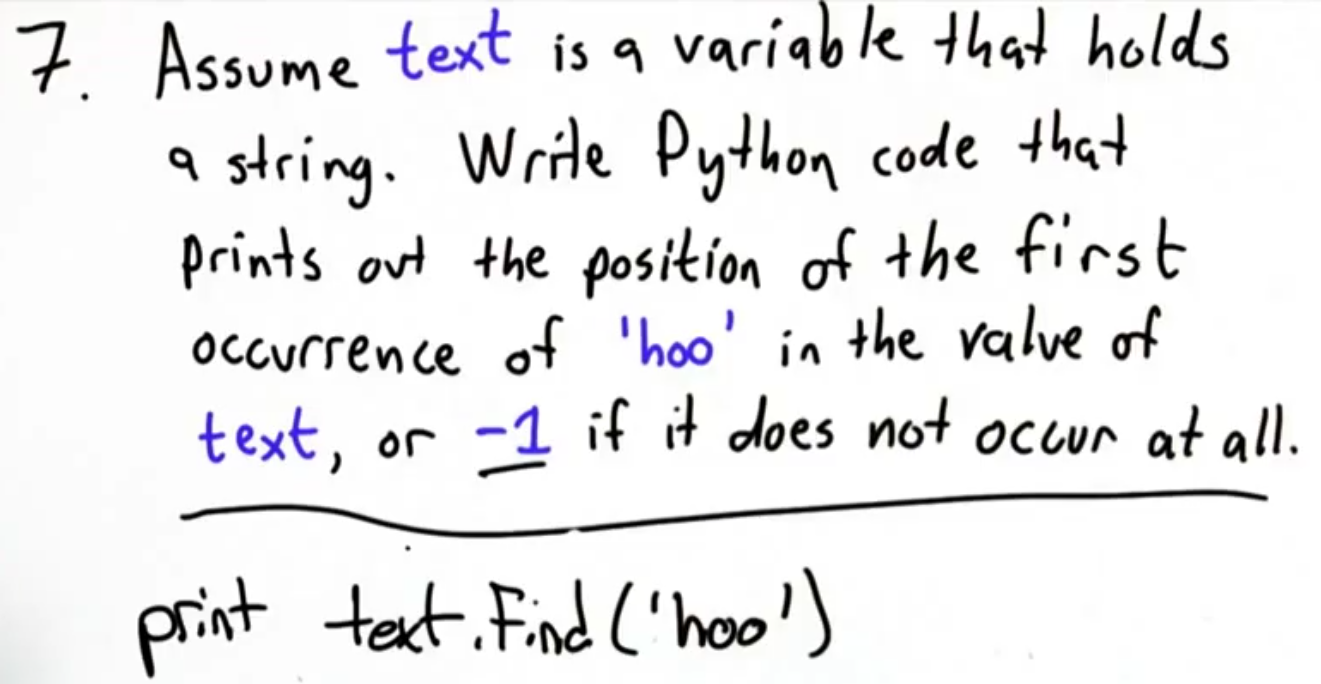 7. Assume text is a variable that holds
a string. Write Python code that
prints out the position of the first
occurrence of 'hoo' in the value of
text, or -1 if it does not occur at all.
print text.find('hoo')